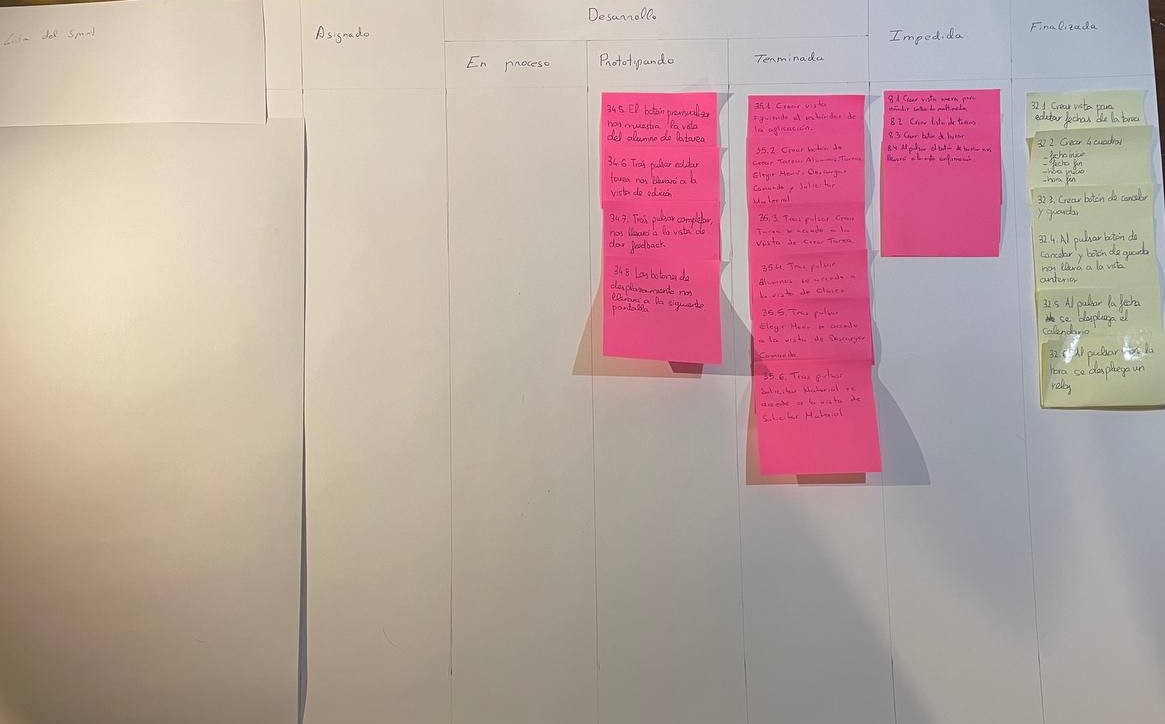 Lista del Sprint
Asignado
Desarrollo
En proceso
Prototipando
Terminada
Impedida
Finalizada
34.5. El botón previsualizar
nos muestra la vista
del alumno de la tarea
34.6 Tras pulsar editar
tarea nos llevará a la
vista de edición
34.7. Tras pulsar completar,
nos llevará a la vista de
dar feedback
34.8. Los botones de
desplazamiento nos
llevará a la siguiente
pantalla
35.1. Crear vista
siguiendo el estándar de
la aplicación.
35.2. Crear botón de
Crear Tarea, Alumnos, Tarea,
Elegir Menú, Descargar
Comanda y Solicitar
Material
35.3. Tras pulsar Crear
Tarea se accede a la
vista de Crear Tarea.
35.4. Tras pulsar
Alumnos se accede a
la vista de Clases
35.5. Tras pulsar
Elegir Menú se accede
a la vista de Descargar
Comanda.
35.6. Tras pulsar
Solicitar Material se
accede a la vista de
Solicitar Material
8.1 Crear vista nueva para
añadir contenido multimedia
8.2. Crear lista de tareas
8.3 Crear botón de borrar
8.4 Al pulsar el botón de borrar nos
llevará a la vista confirmación
32.1 Crear vista para
editar fechas de la tarea
32.2. Crear 4 cuadros
- fecha inicio
- fecha fin
- hora inicio
- hora fin
32.3. Crear botón de cancelar
y guardar
32.4. Al pulsar botón de
cancelar y botón de guardar
nos lleva a la vista
anterior
32.5 Al pulsar la fecha
se despliega el
calendario
32.6 Al pulsar la
hora se despliega un
reloj